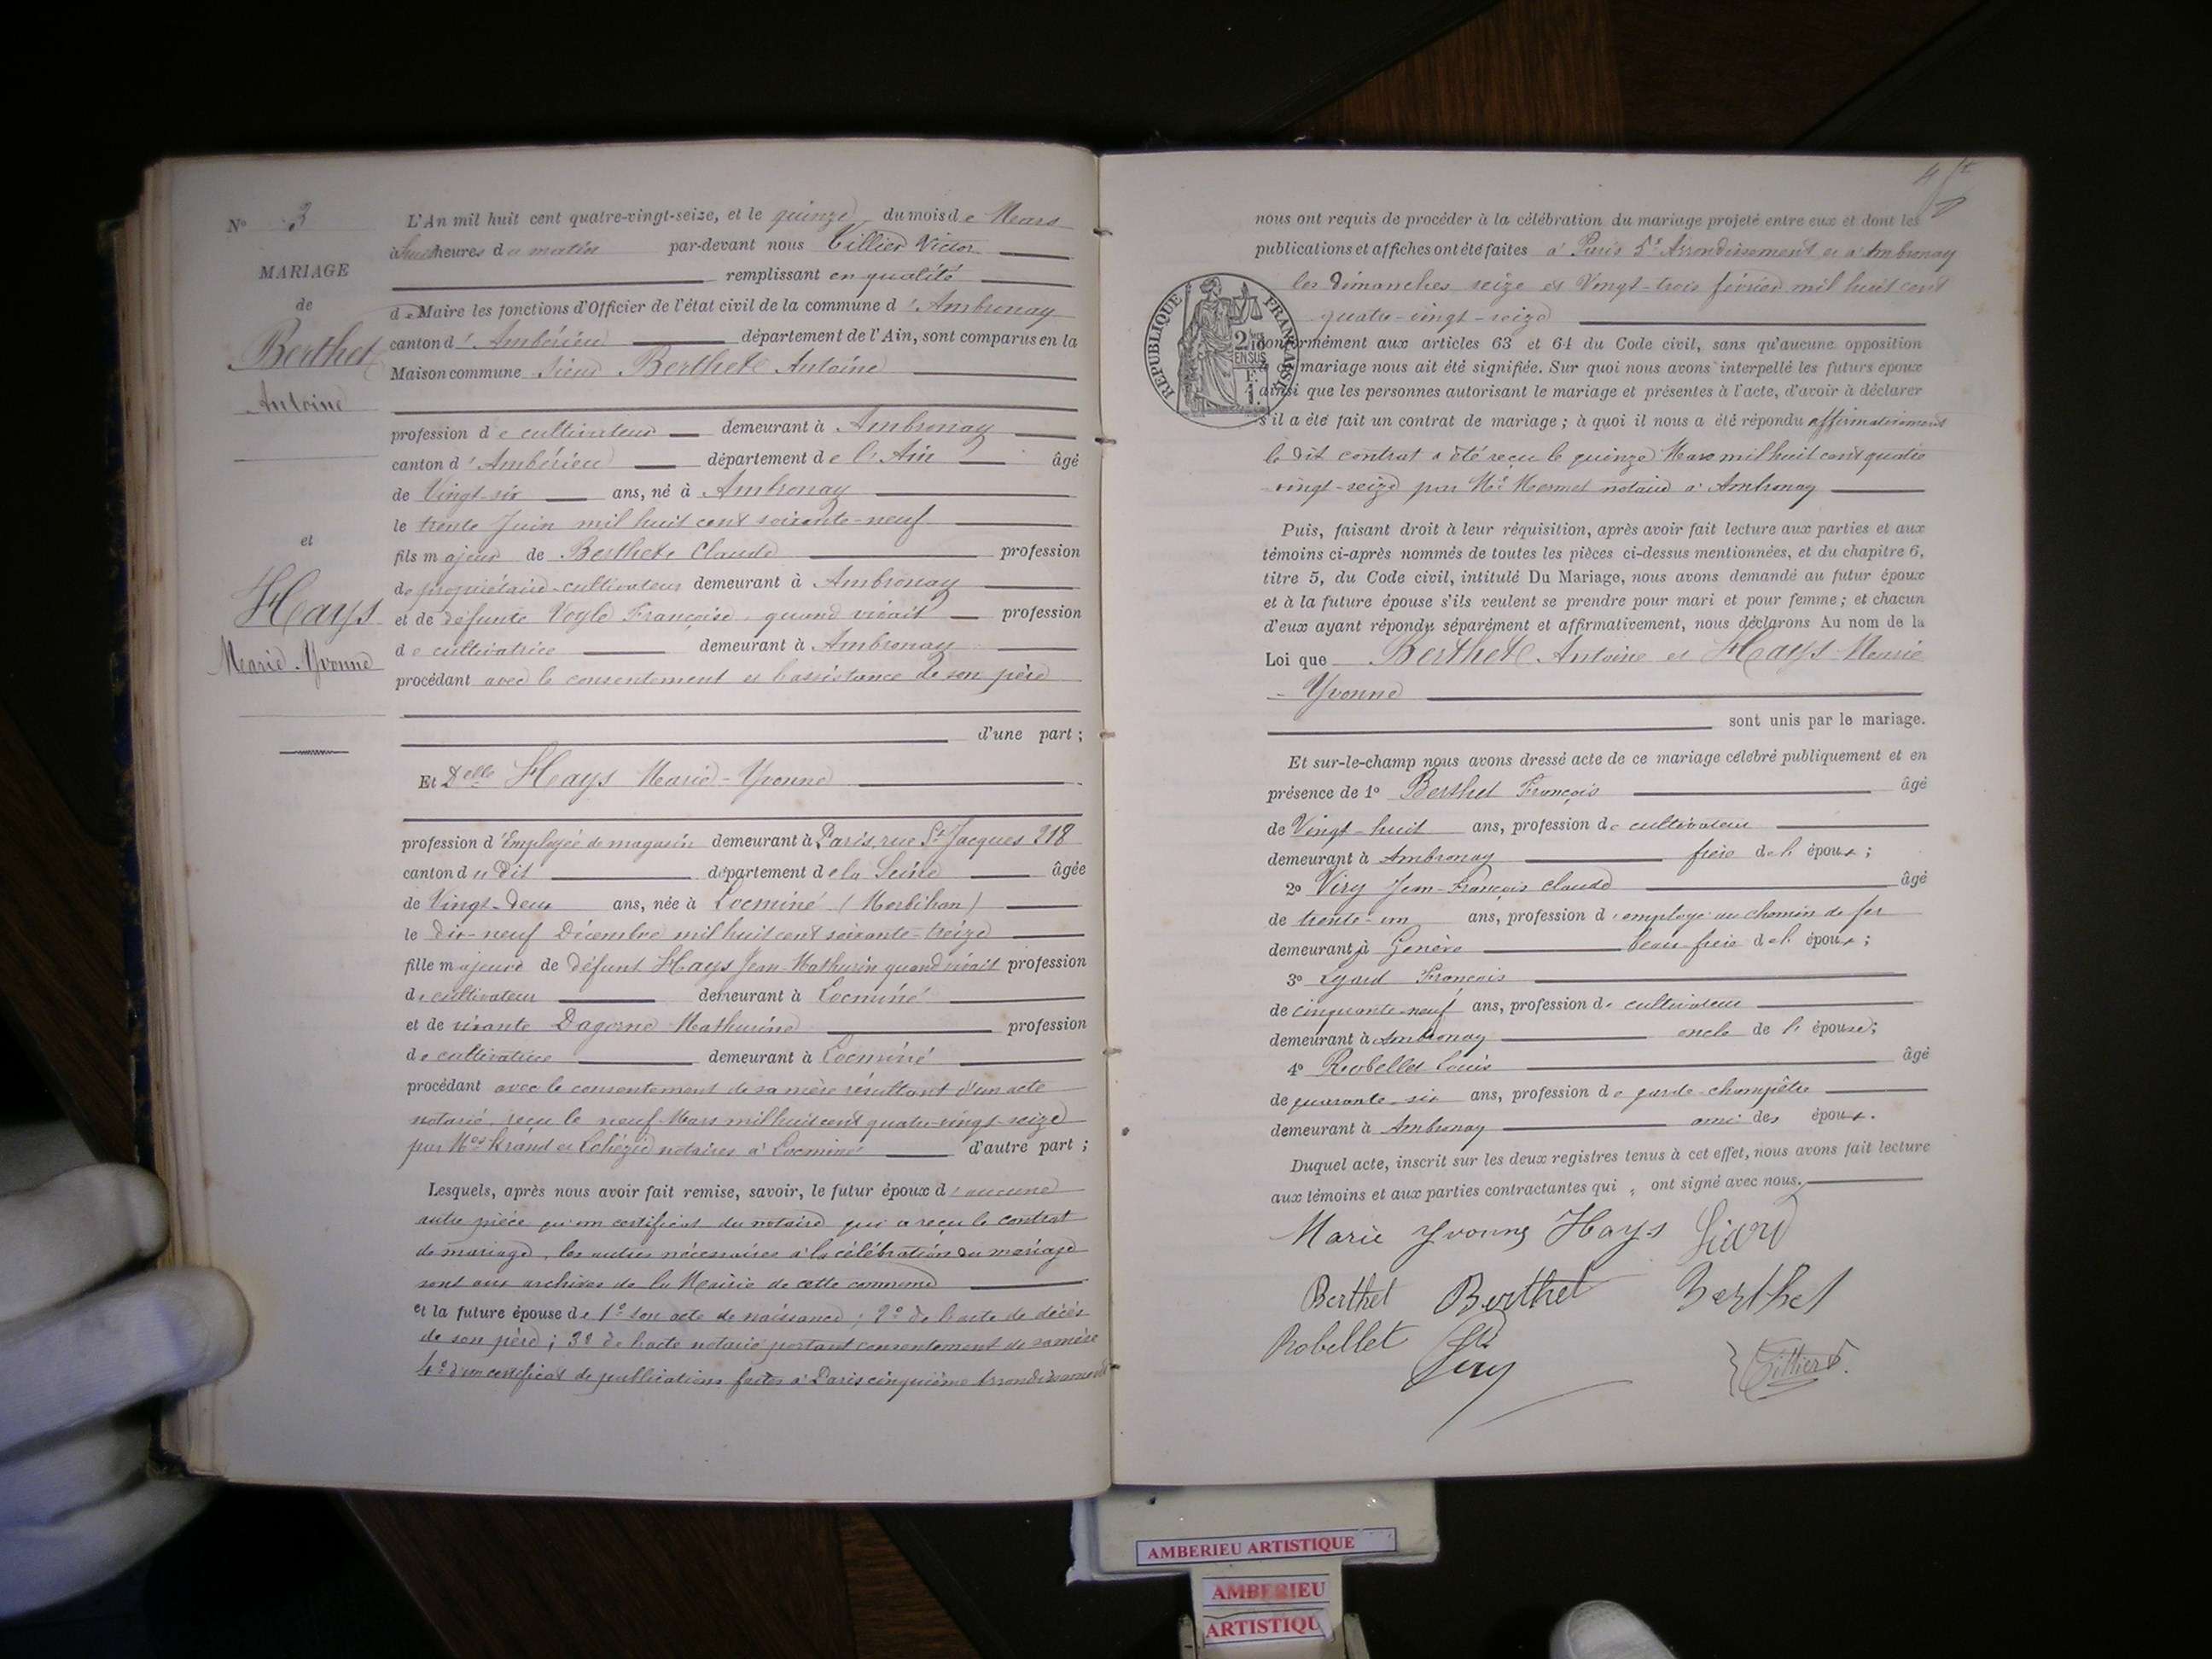 N° 3
MARIAGE
de
Berthet
Antoine
et
Hays
Marie-Yvonne
L'An mil huit cent quatre-vingt-seize, et le quinze du mois de Mars
à huit heures du matin par-devant nous Tillier Victor
remplissant en qualité
de Maire les fonctions d'Officier de l'état civil de la commune d'Ambronay
canton d'Ambérieu département de l'Ain, sont comparus en la
Maison commune Sieur Berthet Antoine
profession de cultivateur demeurant à Ambronay
canton d'Ambérieu département de l'Ain âgé
de Vingt-six ans, né à Ambronay
le trente Juin mil huit cent soixante-neuf
fils majeur de Berthet Claude profession
de propriétaire-cultivateur demeurant à Ambronay
et de défunte Vogle Françoise, quand vivait profession
de cultivatrice demeurant à Ambronay
procédant avec le consentement et l'assistance de son père
d'une part ;
Et Delle Hays Marie-Yvonne
profession d'Employée de magasin demeurant à Paris, rue St Jacques 218
canton du dit département de la Seine âgée
de Vingt-deux ans, née à Locminé (Morbihan)
le dix-neuf Décembre mil huit cent soixante-treize
fille majeure de défunt Hays Jean-Mathurin quand vivait profession
de cultivateur demeurant à Locminé
et de vivante Dagorne Mathurine profession
de cultivatrice demeurant à Locminé
procédant avec le consentement de sa mère résultant d'un acte
notarié, reçu le neuf Mars mil huit cent quatre-vingt-seize
par Mes et notaires à Locminé d'autre part ;
Lesquels, après nous avoir fait remise, savoir, le futur époux d'aucune
autre pièce qu'un certificat du notaire qui a reçu le contrat
de mariage, les autres nécessaires à la célébration du mariage
sont aux archives de la Mairie de cette commune
et la future épouse de 1° son acte de naissance ; 2° de l'acte de décès
de son père ; 3° de l'acte notarié portant consentement de sa mère
4° d'un certificat de publications faites à Paris cinquième Arrondissement
4
nous ont requis de procéder à la célébration du mariage projeté entre eux et dont les
publications et affiches ont été faites à Paris 5e Arrondissement et à Ambronay
les dimanches seize et Vingt-trois février mil huit cent
quatre-vingt-seize
RÉPUBLIQUE FRANÇAISE
2/10 EN SUS
conformément aux articles 63 et 64 du Code civil, sans qu'aucune opposition
à ce mariage nous ait été signifiée. Sur quoi nous avons interpellé les futurs époux
ainsi que les personnes autorisant le mariage et présentes à l'acte, d'avoir à déclarer
s'il a été fait un contrat de mariage ; à quoi il nous a été répondu affirmativement
le dit contrat a été reçu le quinze Mars mil huit cent quatre
vingt-seize par Me Mermet notaire à Ambronay
Puis, faisant droit à leur réquisition, après avoir fait lecture aux parties et aux
témoins ci-après nommés de toutes les pièces ci-dessus mentionnées, et du chapitre 6,
titre 5, du Code civil, intitulé Du Mariage, nous avons demandé au futur époux
et à la future épouse s'ils veulent se prendre pour mari et pour femme ; et chacun
d'eux ayant répondu séparément et affirmativement, nous déclarons Au nom de la
Loi que Berthet Antoine et Hays Marie
-Yvonne
sont unis par le mariage.
Et sur-le-champ nous avons dressé acte de ce mariage célébré publiquement et en
présence de 1° Berthet François âgé
de Vingt-huit ans, profession de cultivateur
demeurant à Ambronay frère de l'époux ;
2° Viry Jean-François Claude âgé
de trente-un ans, profession d'employé au chemin de fer
demeurant à Genève beau-frère de l'époux ;
3° Lyard François
de cinquante-neuf ans, profession de cultivateur
demeurant à Ambronay oncle de l'épouse ;
4° Robellet Louis âgé
de quarante-six ans, profession de garde-champêtre
demeurant à Ambronay ami des époux.
Duquel acte, inscrit sur les deux registres tenus à cet effet, nous avons fait lecture
aux témoins et aux parties contractantes qui ont signé avec nous.
Marie Yvonne Hays Liard
Berthet Berthet Berthet
Robellet Viry
Tillier V.
AMBERIEU ARTISTIQUE
AMBERIEU
ARTISTIQU